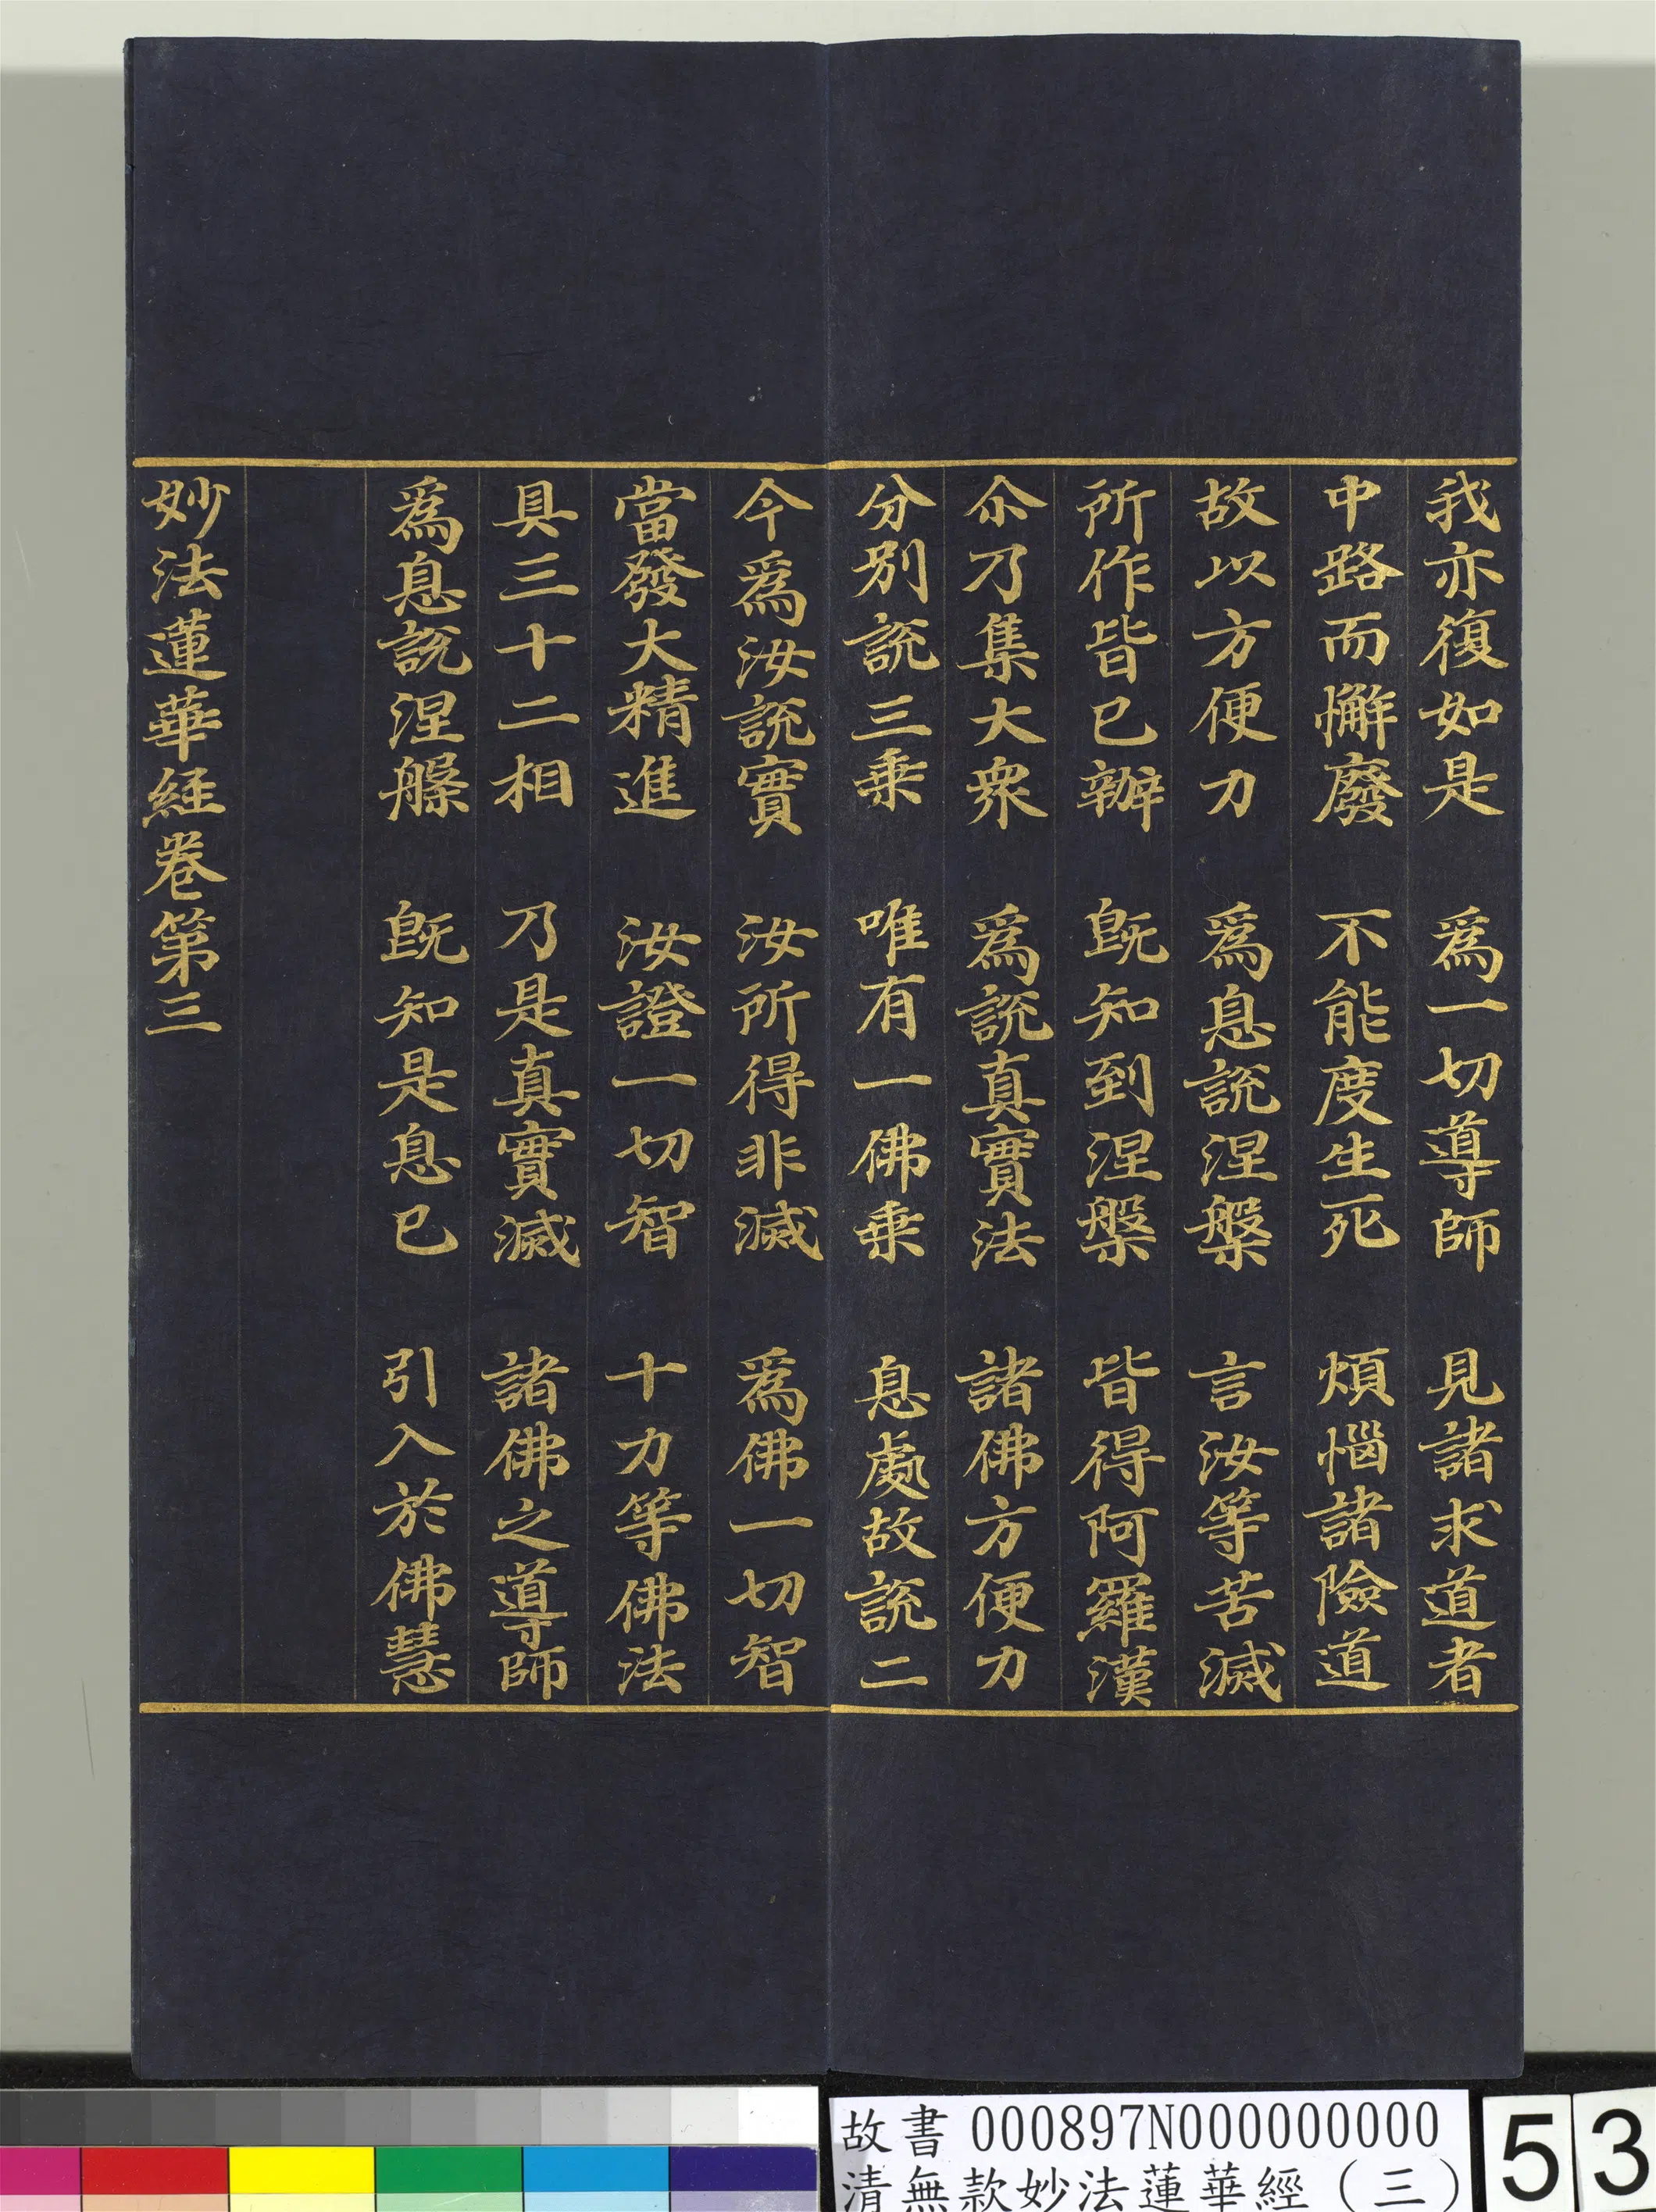 我亦復如是　爲一切導師　見諸求道者
中路而懈廢　不能度生死　煩惱諸險道
故以方便力　爲息說涅槃　言汝等苦滅
所作皆已辦　旣知到涅槃　皆得阿羅漢
尒乃集大衆　爲說真實法　諸佛方便力
分別說三乗　唯有一佛乗　息處故說二
今爲汝說實　汝所得非滅　爲佛一切智
當發大精進　汝證一切智　十力等佛法
具三十二相　乃是真實滅　諸佛之導師
爲息說涅槃　旣知是息已　引入於佛慧
妙法蓮華経卷第三
故書 000897N000000000
清無款妙法蓮華經（三）
53